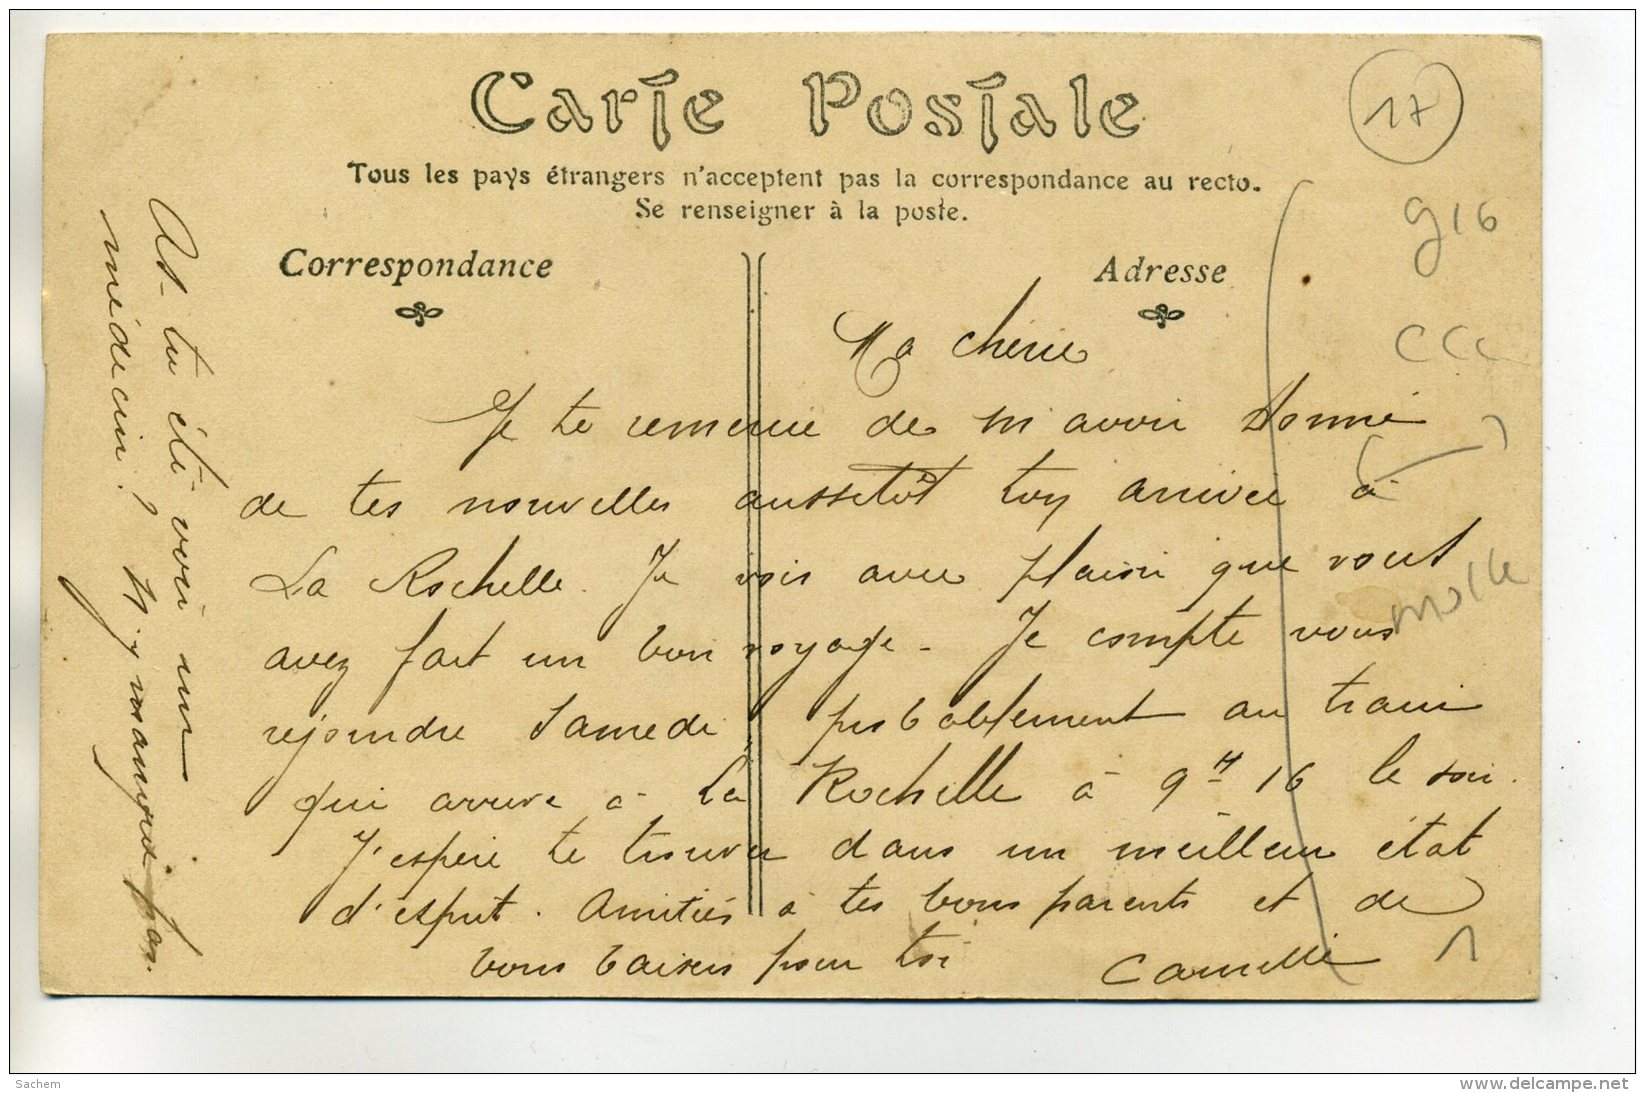 Carte Postale
17
Tous les pays étrangers n'acceptent pas la correspondance au recto.
Se renseigner à la poste.
Correspondance
Adresse
g16
CCC
Ma chérie
Je te remercie de m'avoir donné
de tes nouvelles aussetôt ton arrivée à
La Rochelle. Je vois avec plaisir que vous
avez fait un bon voyage - Je compte vous
rejoindre Samedi, probablement au train
qui arrive à La Rochelle à 9 H 16 le soir.
J'espère te trouver dans un meilleur état
d'esprit. Amitiés à tes bons parents et de
bons baisers pour toi Camille
As-tu été voir un
médecin? N'y manque pas.
1
Sachem
www.delcampe.net